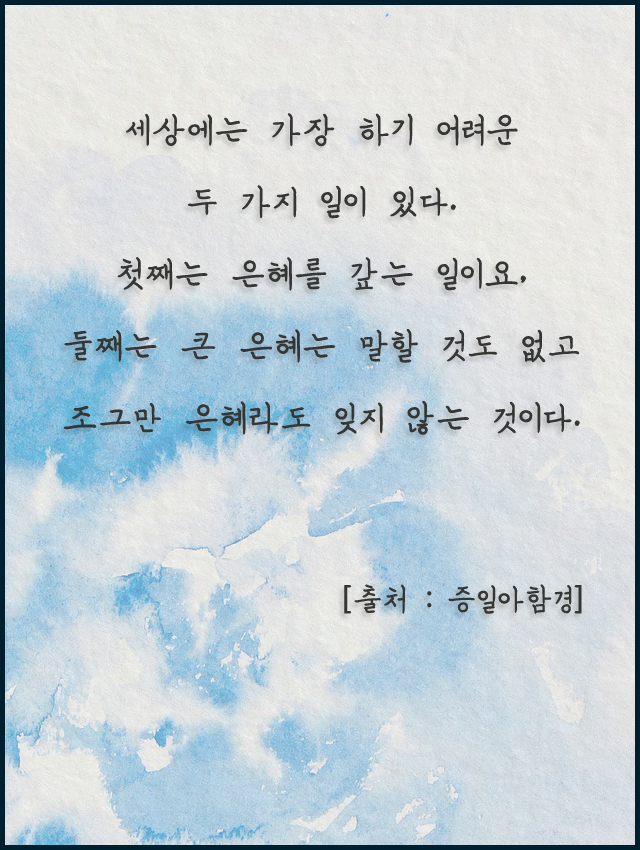 세상에는 가장 하기 어려운
두 가지 일이 있다.
첫째는 은혜를 갚는 일이요,
둘째는 큰 은혜는 말할 것도 없고
조그만 은혜라도 잊지 않는 것이다.
[출처 : 증일아함경]